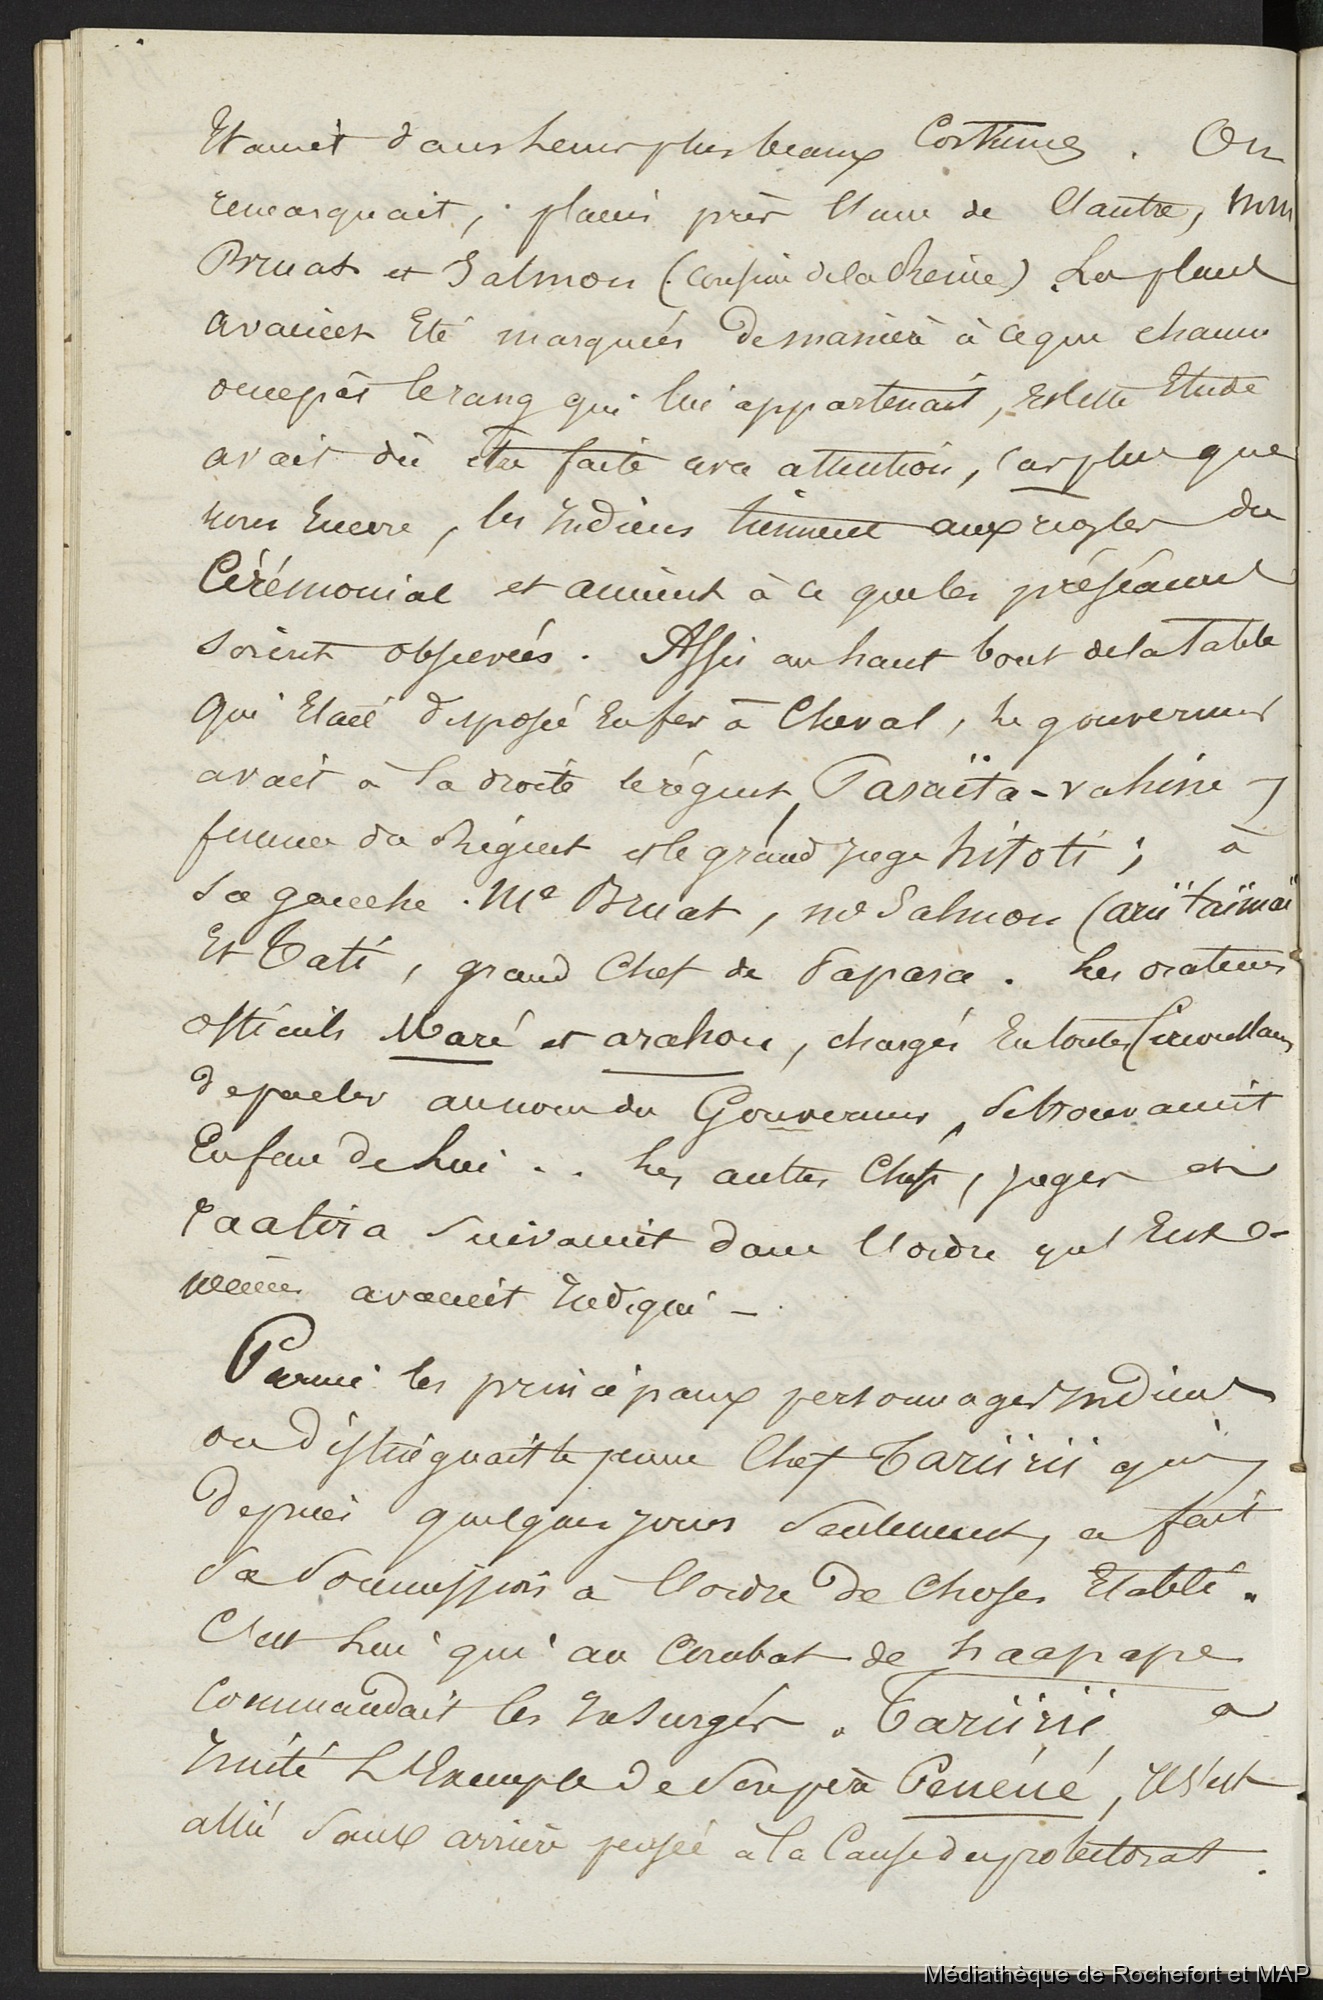 Etaient dans leurs plus beaux Costumes. On
remarquait, placés près l'une de l'autre, Mm
Bruat et Salmon (Cousine de la Reine). Les places
avaient Eté marquées de manière à ce que chacun
occupât le rang qui lui appartenait, Et cette Etude
avait dû être faite avec attention, car plus que
nous Encore, les Indiens tiennent aux règles du
Cérémonial et aiment à ce que les préséances
soient observées. Assis au haut bout de la table
qui Etait disposée En fer à Cheval, le gouverneur
avait à sa droite le régent, Paraïta-vahine,
femme du Régent et le grand juge hitoti; à
sa gauche Me Bruat, me Salmon (ariitaïmaï
Et Tati, grand Chef de Papara. Les orateurs
officiels Maré et arahou, chargés En toutes Circonstances
de parler au nom du Gouverneur, se trouvaient
En face de Lui.. Les autres Chefs, juges et
raatira suivaient dans l'ordre qu' Eux-
mêmes avaient Indiqué -
Parmi les principaux personnages Indiens
on distinguait le jeune Chef Tariirii qui,
depuis quelques jours seulement, a fait
sa soumission à l'ordre de choses Etabli.
C'est lui qui au Combat de haapape
commandait les Insurgés. Tariirii a
Imité L'Exemple de son père Peneué, Il s'est
allié sans arrière pensée à la Cause du protectorat.
Médiathèque de Rochefort et MAP